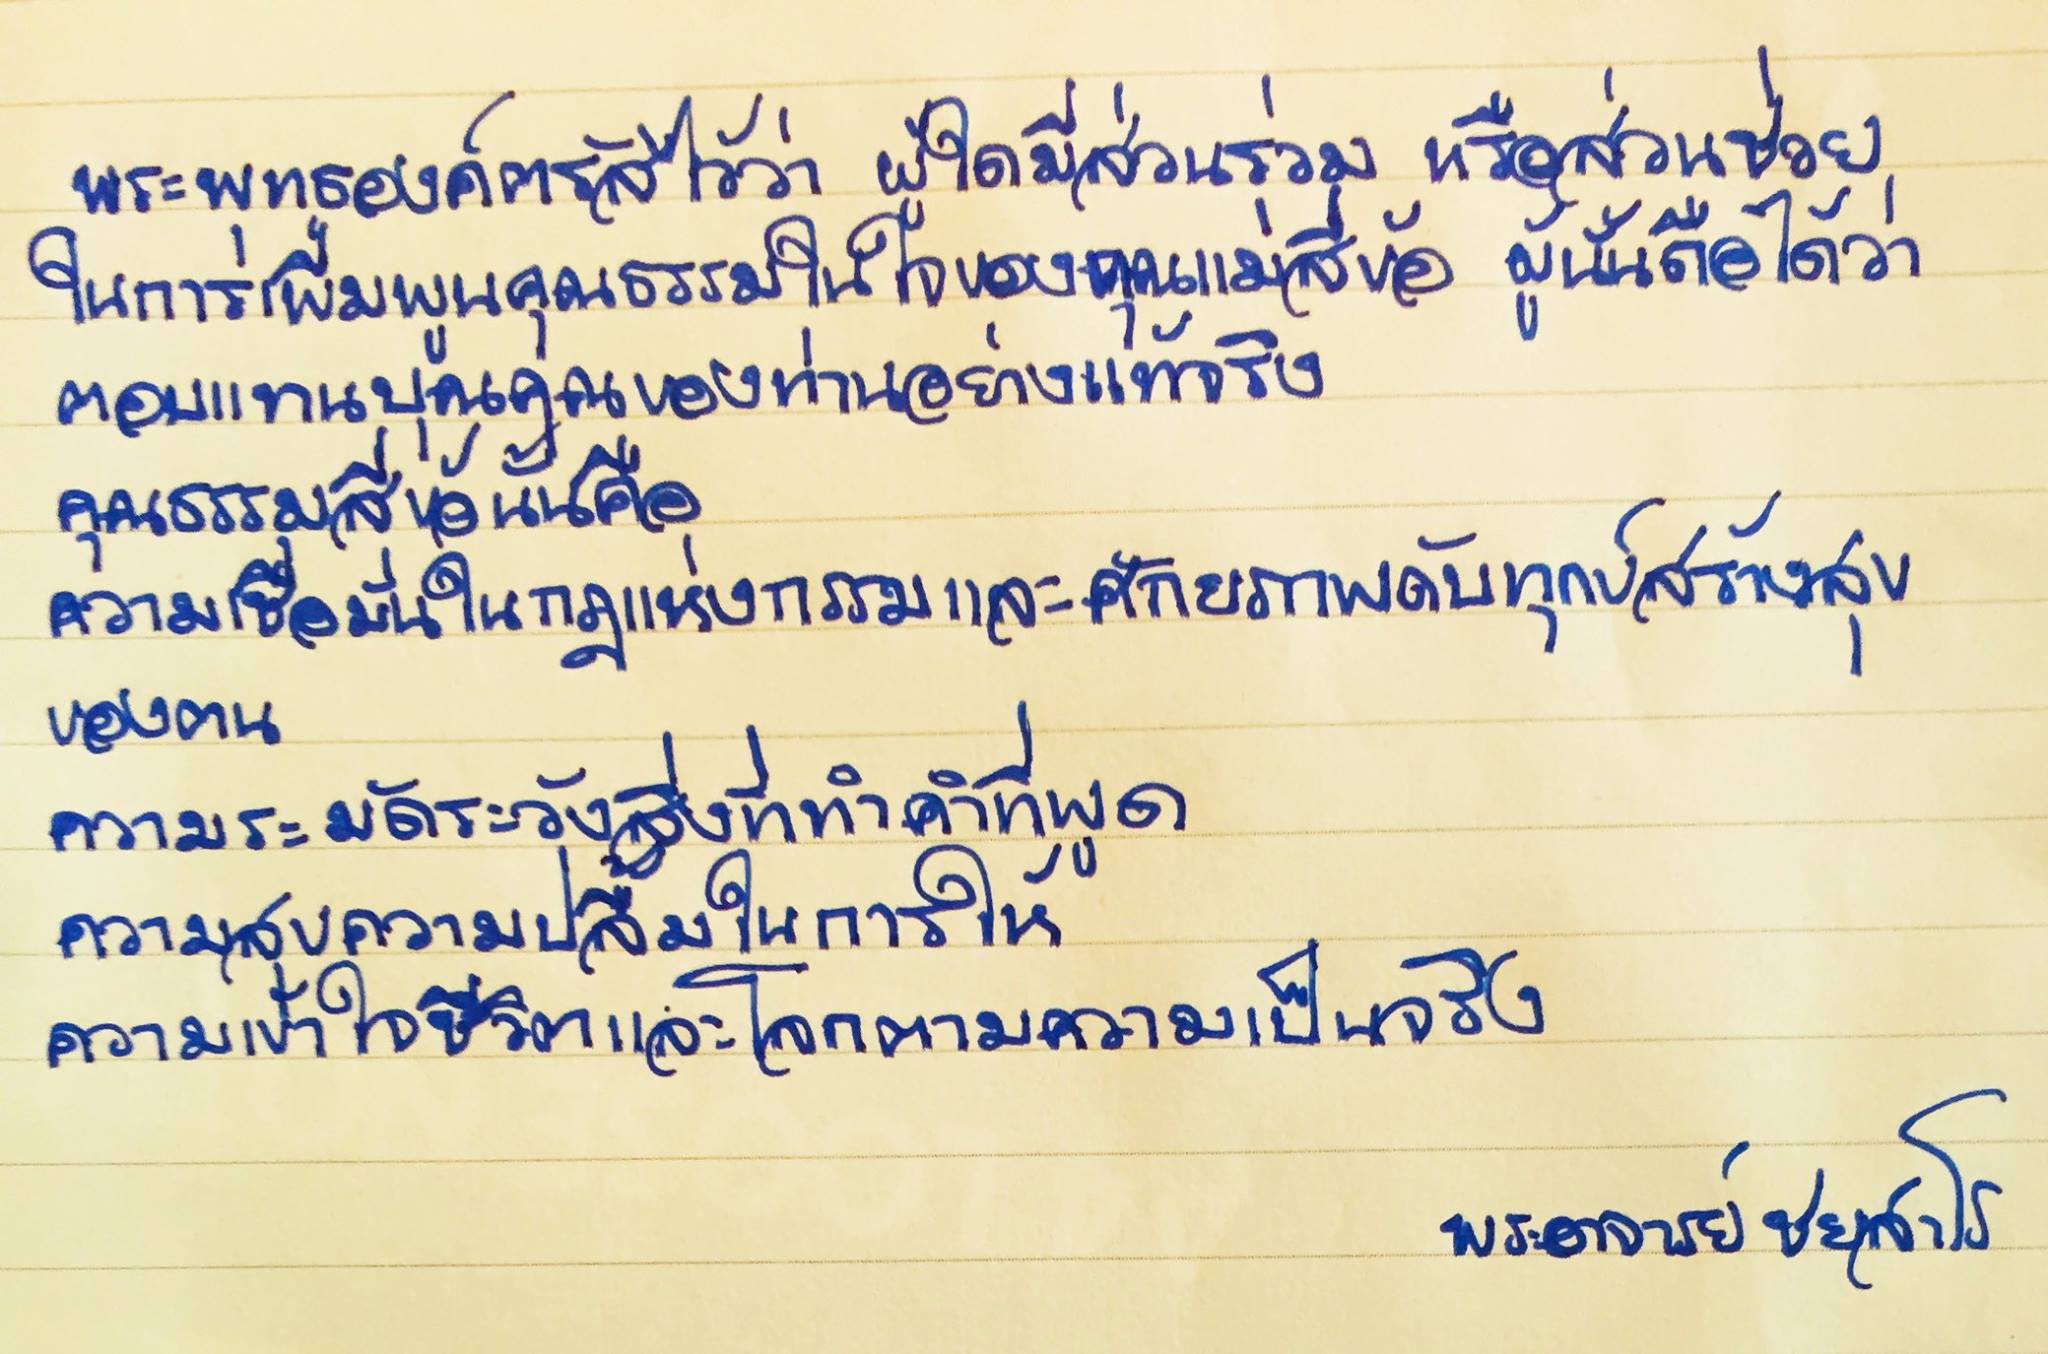 พระพุทธองค์ตรัสไว้ว่า ผู้ใดมีส่วนร่วม หรือส่วนช่วย
ในการเพิ่มพูนคุณธรรมในใจของคุณแม่สี่ข้อ ผู้นั้นถือได้ว่า
ตอบแทนบุญคุณของท่านอย่างแท้จริง
คุณธรรมสี่ข้อนั้นคือ
ความเชื่อมั่นในกฎแห่งกรรมและศักยภาพดับทุกข์สร้างสุข
ของตน
ความระมัดระวังสิ่งที่ทำคำที่พูด
ความสุขความปลื้มในการให้
ความเข้าใจชีวิตและโลกตามความเป็นจริง
พระอาจารย์ ชยสาโร